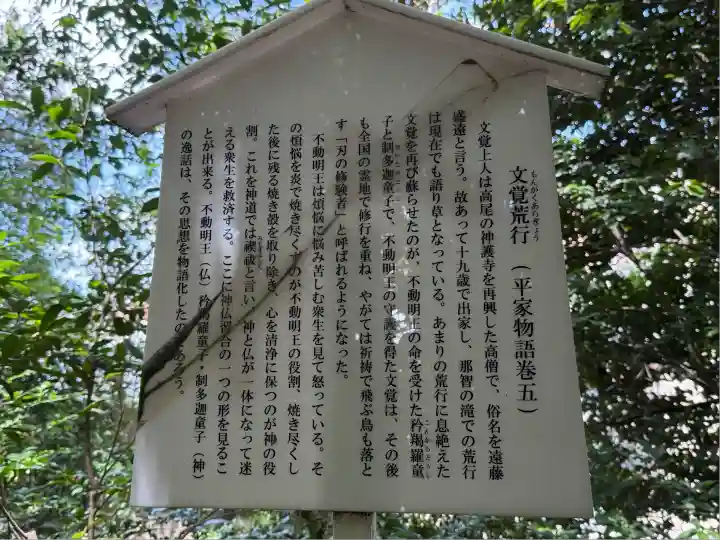 文覚荒行（平家物語巻五）
もんがくあらぎょう
文覚上人は高尾の神護寺を再興した高僧で、俗名を遠藤
盛遠と言う。故あって十九歳で出家し、那智の滝での荒行
は現在でも語り草となっている。あまりの荒行に息絶えた
文覚を再び蘇らせたのが、不動明王の命を受けた矜羯羅童
こんがらどうじ
子と制多迦童子で、不動明王の守護を得た文覚は、その後
も全国の霊地で修行を重ね、やがては祈祷で飛ぶ鳥も落と
す「刃の修験者」と呼ばれるようになった。
不動明王は煩悩に悩み苦しむ衆生を見て怒っている。そ
の煩悩を炎で焼き尽くのが不動明王の役割、焼き尽くし
た後に残る焼き殻を取り除き、心を清浄に保つのが神の役
割。これを神道では禊祓と言い、神と仏が一体になって迷
える衆生を救済する。ここに神仏習合の一つの形を見るこ
とが出来る。不動明王（仏）矜羯羅童子・制多迦童子（神）
の逸話は、その思想を物語化したのであろう。